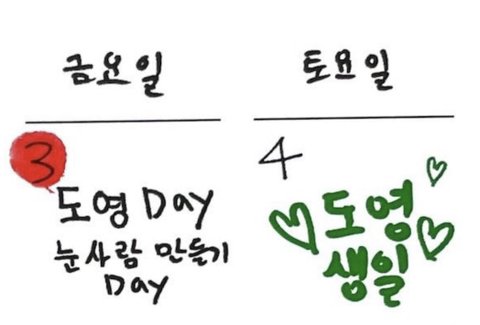 금요일
토요일
3
도영 Day
눈사람 만들기
Day
4
도영
생일